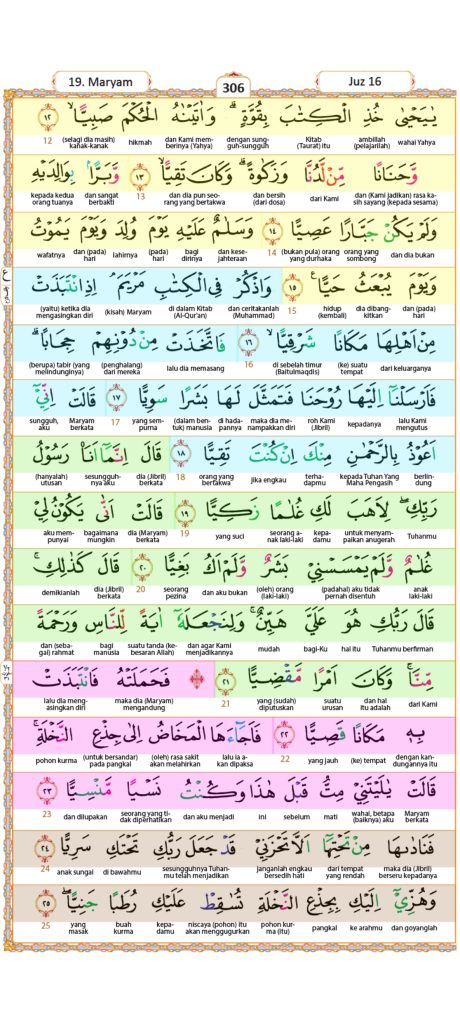 19. Maryam
306
Juz 16
يٰيَحْيٰى خُذِ الْكِتٰبَ بِقُوَّةٍ ۗ وَاٰتَيْنٰهُ الْحُكْمَ صَبِيًّا ۙ ١٢
12 (selagi dia masih) kanak-kanak hikmah dan Kami memberinya (Yahya) dengan sungguh-sungguh Kitab (Taurat) itu ambillah (pelajarilah) wahai Yahya
وَّحَنَانًا مِّنْ لَّدُنَّا وَزَكٰوةً ۗ وَكَانَ تَقِيًّا ۙ ١٣ وَّبَرًّا ۢ بِوَالِدَيْهِ
kepada kedua orang tuanya dan sangat berbakti 13 dan dia pun seorang yang bertakwa dan bersih (dari dosa) dari Kami dan (Kami jadikan) rasa kasih sayang (kepada sesama)
وَلَمْ يَكُنْ جَبَّارًا عَصِيًّا ١٤ وَسَلٰمٌ عَلَيْهِ يَوْمَ وُلِدَ وَيَوْمَ يَمُوْتُ
wafatnya dan (pada) hari lahirnya (pada) hari bagi dirinya dan kesejahteraan 14 (bukan pula) orang yang durhaka orang yang sombong dan dia bukan
وَيَوْمَ يُبْعَثُ حَيًّا ࣖ ١٥ وَاذْكُرْ فِى الْكِتٰبِ مَرْيَمَۘ اِذِ انْتَبَذَتْ
(yaitu) ketika dia mengasingkan diri (kisah) Maryam di dalam Kitab (Al-Qur'an) dan ceritakanlah (Muhammad) 15 hidup (kembali) dia dibangkitkan dan (pada) hari
مِنْ اَهْلِهَا مَكَانًا شَرْقِيًّا ۙ ١٦ فَاتَّخَذَتْ مِنْ دُوْنِهِمْ حِجَابًا ۗ
(berupa) tabir (yang melindunginya) (penghalang) dari mereka lalu dia memasang 16 di sebelah timur (Baitulmaqdis) (ke) suatu tempat dari keluarganya
فَاَرْسَلْنَآ اِلَيْهَا رُوْحَنَا فَتَمَثَّلَ لَهَا بَشَرًا سَوِيًّا ١٧ قَالَتْ اِنِّيْٓ
sungguh, aku Maryam berkata 17 yang sempurna (dalam bentuk) manusia di hadapannya maka dia menampakkan diri roh Kami (Jibril) kepadanya lalu Kami mengutus
اَعُوْذُ بِالرَّحْمٰنِ مِنْكَ اِنْ كُنْتَ تَقِيًّا ١٨ قَالَ اِنَّمَآ اَنَا۠ رَسُوْلُ
(hanyalah) utusan sesungguhnya aku dia (Jibril) berkata 18 orang yang bertakwa jika engkau terhadapmu kepada Tuhan Yang Maha Pengasih berlindung
رَبِّكِۖ لِاَهَبَ لَكِ غُلٰمًا زَكِيًّا ١٩ قَالَتْ اَنّٰى يَكُوْنُ لِيْ
aku mempunyai bagaimana mungkin dia (Maryam) berkata 19 yang suci seorang anak laki-laki kepadamu untuk menyampaikan anugerah Tuhanmu
غُلٰمٌ وَّلَمْ يَمْسَسْنِيْ بَشَرٌ وَّلَمْ اَكُ بَغِيًّا ٢٠ قَالَ كَذٰلِكِۚ
demikianlah dia (Jibril) berkata 20 seorang pezina dan aku bukan (oleh) orang (laki-laki) (padahal) aku tidak pernah disentuh anak laki-laki
قَالَ رَبُّكِ هُوَ عَلَيَّ هَيِّنٌۚ وَلِنَجْعَلَهٗٓ اٰيَةً لِّلنَّاسِ وَرَحْمَةً
dan (sebagai) rahmat bagi manusia suatu tanda (kebesaran Allah) dan agar Kami menjadikannya mudah bagi-Ku hal itu Tuhanmu berfirman
مِّنَّاۚ وَكَانَ اَمْرًا مَّقْضِيًّا ٢١ ۞ فَحَمَلَتْهُ فَانْتَبَذَتْ
lalu dia mengasingkan diri maka dia (Maryam) mengandung 21 yang (sudah) diputuskan suatu urusan dan hal itu adalah dari Kami
بِهٖ مَكَانًا قَصِيًّا ٢٢ فَاَجَاۤءَهَا الْمَخَاضُ اِلٰى جِذْعِ النَّخْلَةِۚ
pohon kurma (untuk bersandar) pada pangkal (oleh) rasa sakit akan melahirkan lalu ia akan dipaksa 22 yang jauh (ke) tempat dengan kandungannya itu
قَالَتْ يٰلَيْتَنِيْ مِتُّ قَبْلَ هٰذَا وَكُنْتُ نَسْيًا مَّنْسِيًّا ٢٣
23 dan dilupakan seorang yang tidak diperhatikan dan aku menjadi ini sebelum mati wahai, betapa (baiknya) aku Maryam berkata
فَنَادٰىهَا مِنْ تَحْتِهَآ اَلَّا تَحْزَنِيْ قَدْ جَعَلَ رَبُّكِ تَحْتَكِ سَرِيًّا ٢٤
24 anak sungai di bawahmu sesungguhnya Tuhanmu telah menjadikan janganlah engkau bersedih hati dari tempat yang rendah maka dia (Jibril) berseru kepadanya
وَهُزِّيْٓ اِلَيْكِ بِجِذْعِ النَّخْلَةِ تُسٰقِطْ عَلَيْكِ رُطَبًا جَنِيًّا ۖ ٢٥
25 yang masak buah kurma kepadamu niscaya (pohon) itu akan menggugurkan pohon kurma (itu) pangkal ke arahmu dan goyanglah